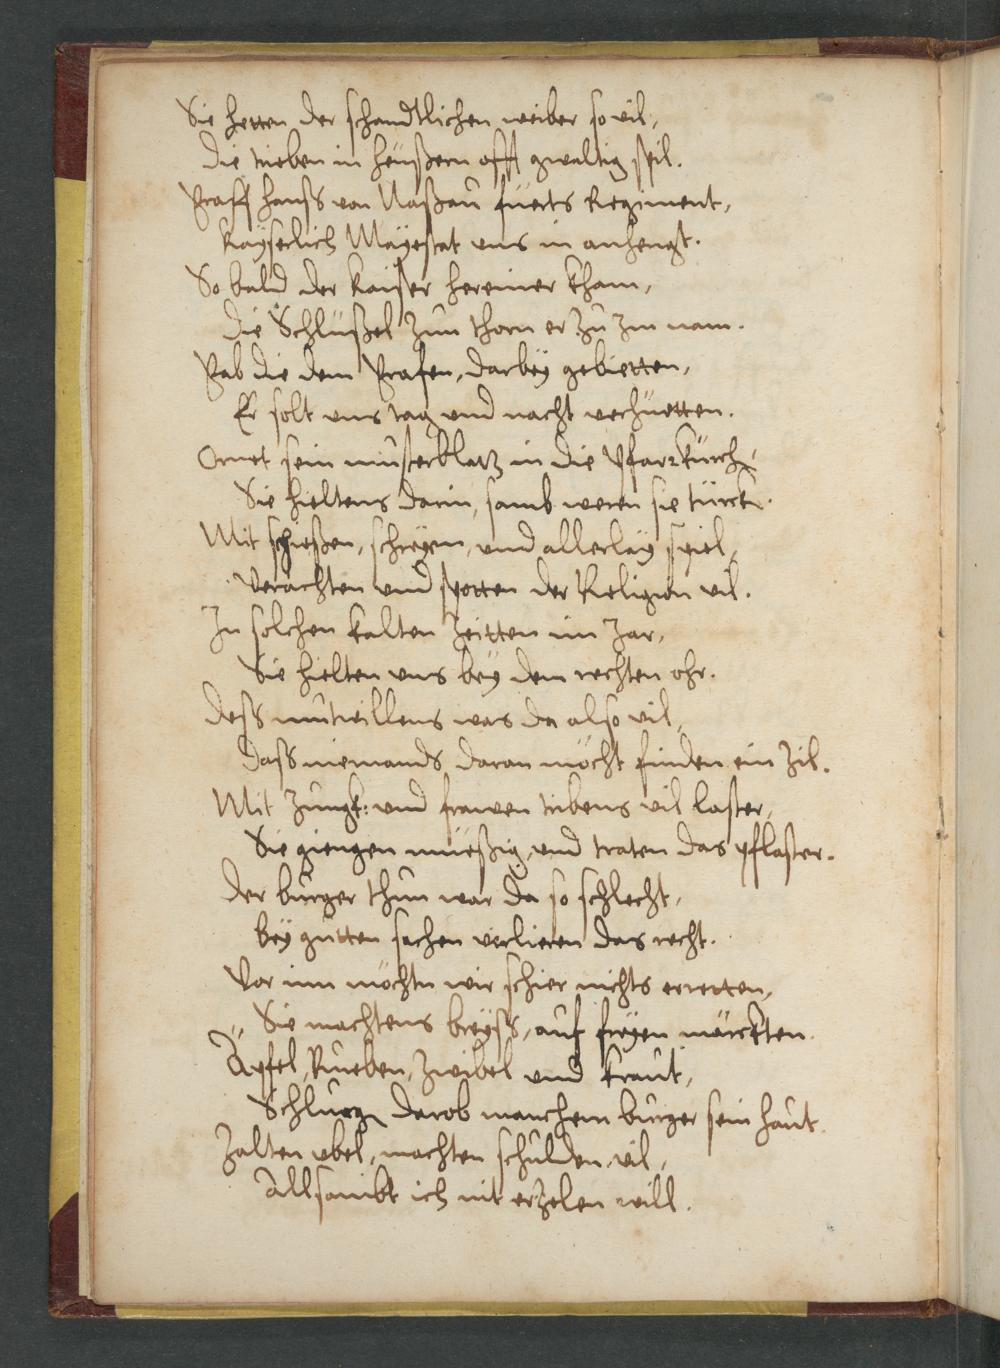 Sie hetten der schandtlichen weiber so vil,
Die trieben in heüßern offt gwaltig spil.
Graff hanß von Naßau füerts Regiment,
Kayserlich Mayestat uns in anhengt.
So bald der Kaißer hereiner kham,
Die Schlüßel zun thorn er zu Im nam.
Gab die dem Grafen, darbey gebietten,
Er solt uns tag und nacht verhüetten.
Ornet sein musterblatz in die Pfarrkürch,
Sie hieltens darin, samb weren sie türck.
Mit schießen, schreyen, und allerlay spiel,
Verachten und spotten der Religion vil.
In solchen kalten Zeitten im Jar,
Sie hielten uns bey dem rechten ohr.
Deß mutwillens was da also vil,
Daß niemands daran möcht finden ein Zil.
Mit Jungk: und frawen tribens vil laster,
Sie giengen müeßig, und traten das pflaster.
Der burger thun war da so schlecht,
bey gutten sachen verlieren das recht.
Vor inn möchtn wir schier nichts erretten,
Sie machtens breyß, auf freyen märckten.
Äpfel, Rueben, Zwibel und kraut,
Schlueg darob manchem burger sein haut.
Zalten ubel, machten schulden vil,
Allsambt ich nit erzelen will.